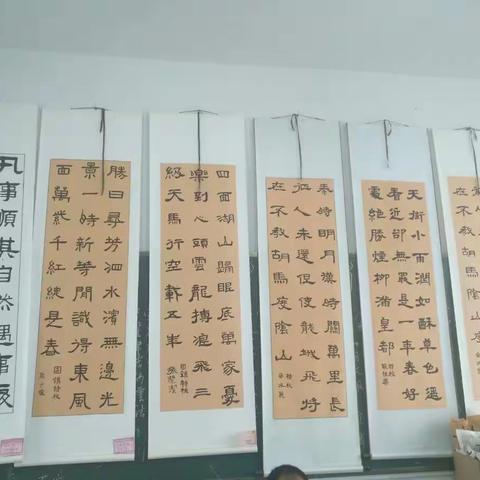 凡事順其自然遇事
勝日尋芳泗水濱無邊光
景一時新等閒識得東風
面萬紫千紅總是春
固鎮特校
四面湖山歸眼底萬家憂
樂到心頭雲龍搏浪飛三
級天馬行空載五車
固鎮特校
秦時明月漢時關萬里長
征人未還但使龍城飛將
在不教胡馬度陰山
特校
天街小雨潤如酥草色遙
看近卻無最是一年春好
處絕勝煙柳滿皇都
特校
在不教胡馬度陰山